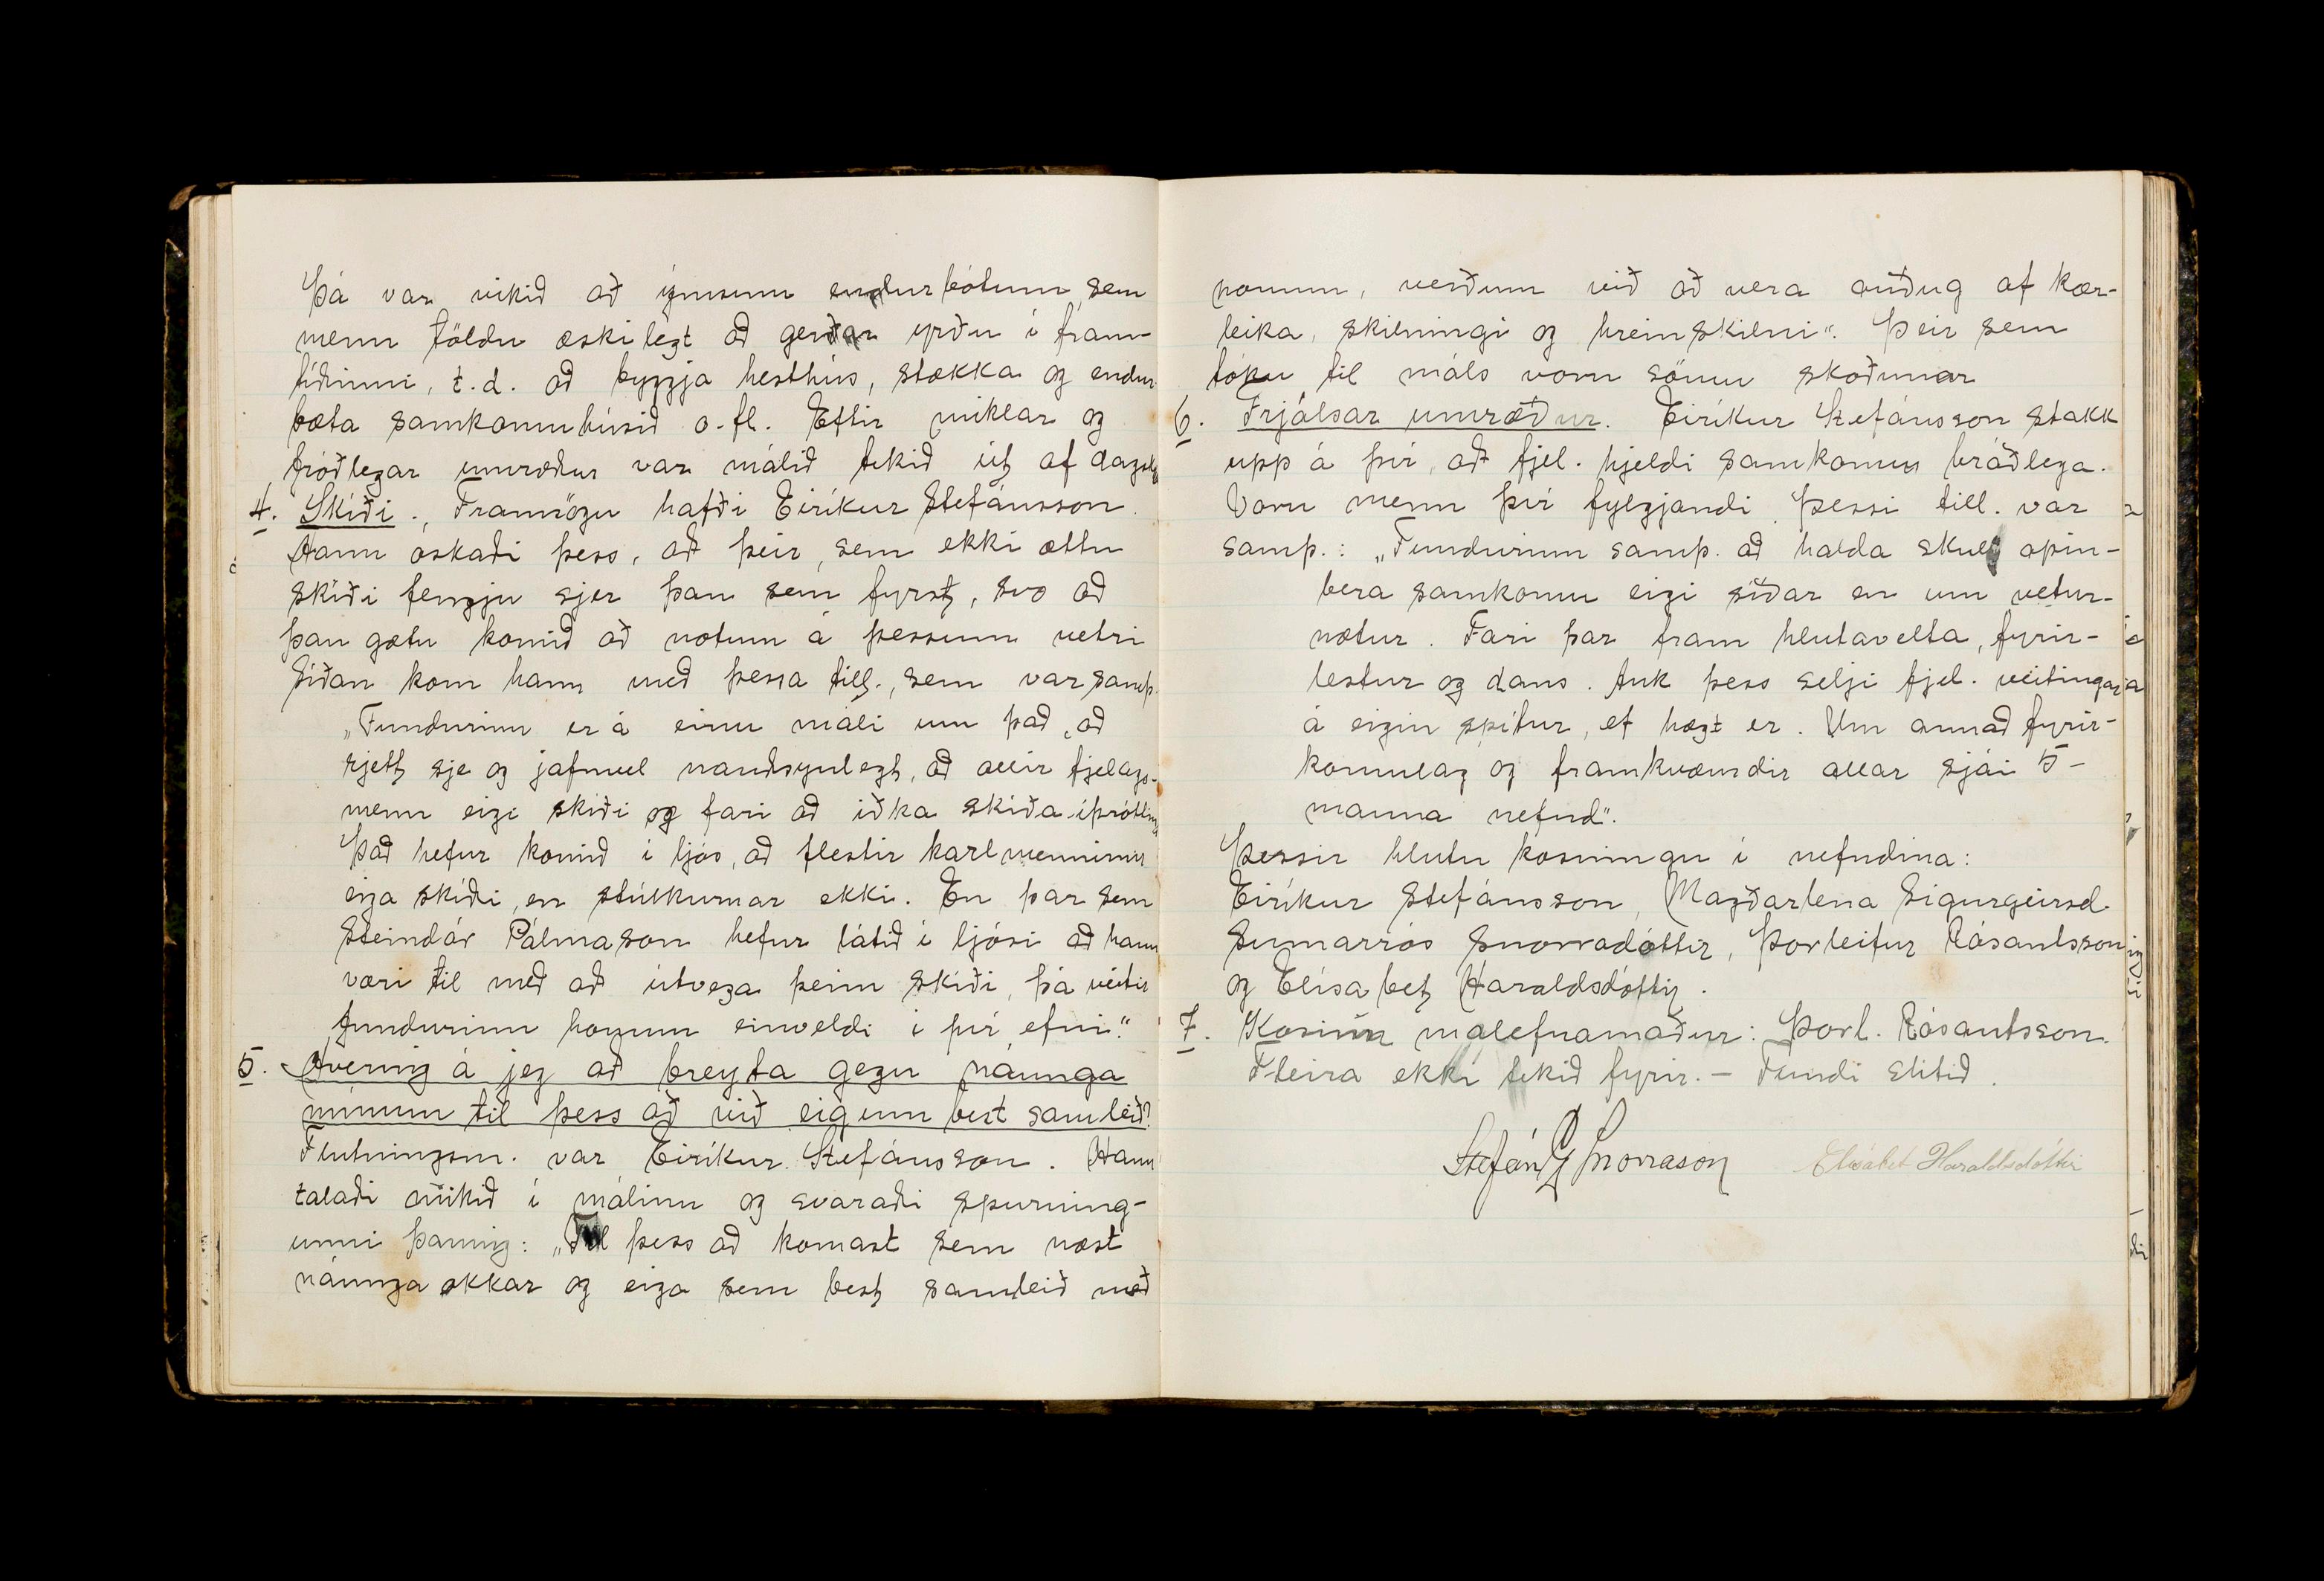 Þá var vikið að ýmsum endurbótum sem
menn töldu æskilegt að gerðar yrðu í fram-
tíðinni, t.d. að byggja hesthús, stækka og endur
bæta samkomuhúsið o.fl. Eftir miklar og
fróðlegar umræður var málið tekið út af dagsk
4. Skíði., Framsögu hafði Eiríkur Stefánsson.
Hann óskaði þess, að þeir, sem ekki ættu
skíði fengju sjer þau sem fyrst, svo að
þau gætu komið að notum á þessum vetri
Síðan kom hann með þessa till., sem var samþ.
„Fundurinn er á einu máli um það, að
rjett sje og jafnvel nauðsynlegt, að allir fjelags-
menn eigi skíði og fari að iðka skíða-íþróttina
Það hefur komið í ljós, að flestir karlmennirnir
eiga skíði, en stúlkurnar ekki. En þar sem
Steindór Pálmason hefur látið í ljósi að hann
væri til með að útvega þeim skíði, þá veitir
fundurinn honum einveldi í því efni."
5. Hvernig á jeg að breyta gegn náunga
mínum til þess að við eigum best samleið?
Flutningsm. var Eiríkur Stefánsson. Hann
talaði mikið í málinu og svaraði spurning-
unni þannig: „Til þess að komast sem næst
náunga okkar og eiga sem best samleið með
honum, verðum við að vera auðug af kær-
leika, skilningi og hreinskilni". Þeir sem
tóku til máls voru sömu skoðunar
6. Frjálsar umræður. Eiríkur Stefánsson stakk
upp á því, að fjel. hjeldi samkomu bráðlega.
Voru menn því fylgjandi. Þessi till. var
samþ.: „Fundurinn samþ. að halda skuli opin-
bera samkomu eigi síðar en um vetur-
nætur. Fari þar fram hlutavelta, fyrir-
lestur og dans. Auk þess selji fjel. veitingar
á eigin spítur, ef hægt er. Um annað fyrir-
komulag og framkvæmdir allar sjái 5-
manna nefnd".
Þessir hlutu kosningu í nefndina:
Eiríkur Stefánsson, Magðarlena Sigurgeirsd.
Sumarrós Snorradóttir, Þorleifur Rósantsson
og Elísabet Haraldsdóttir.
7. Kosinn málefnamaður: Þorl. Rósantsson.
Fleira ekki tekið fyrir. — Fundi slitið.
Stefán G Snorrason Elísabet Haraldsdóttir